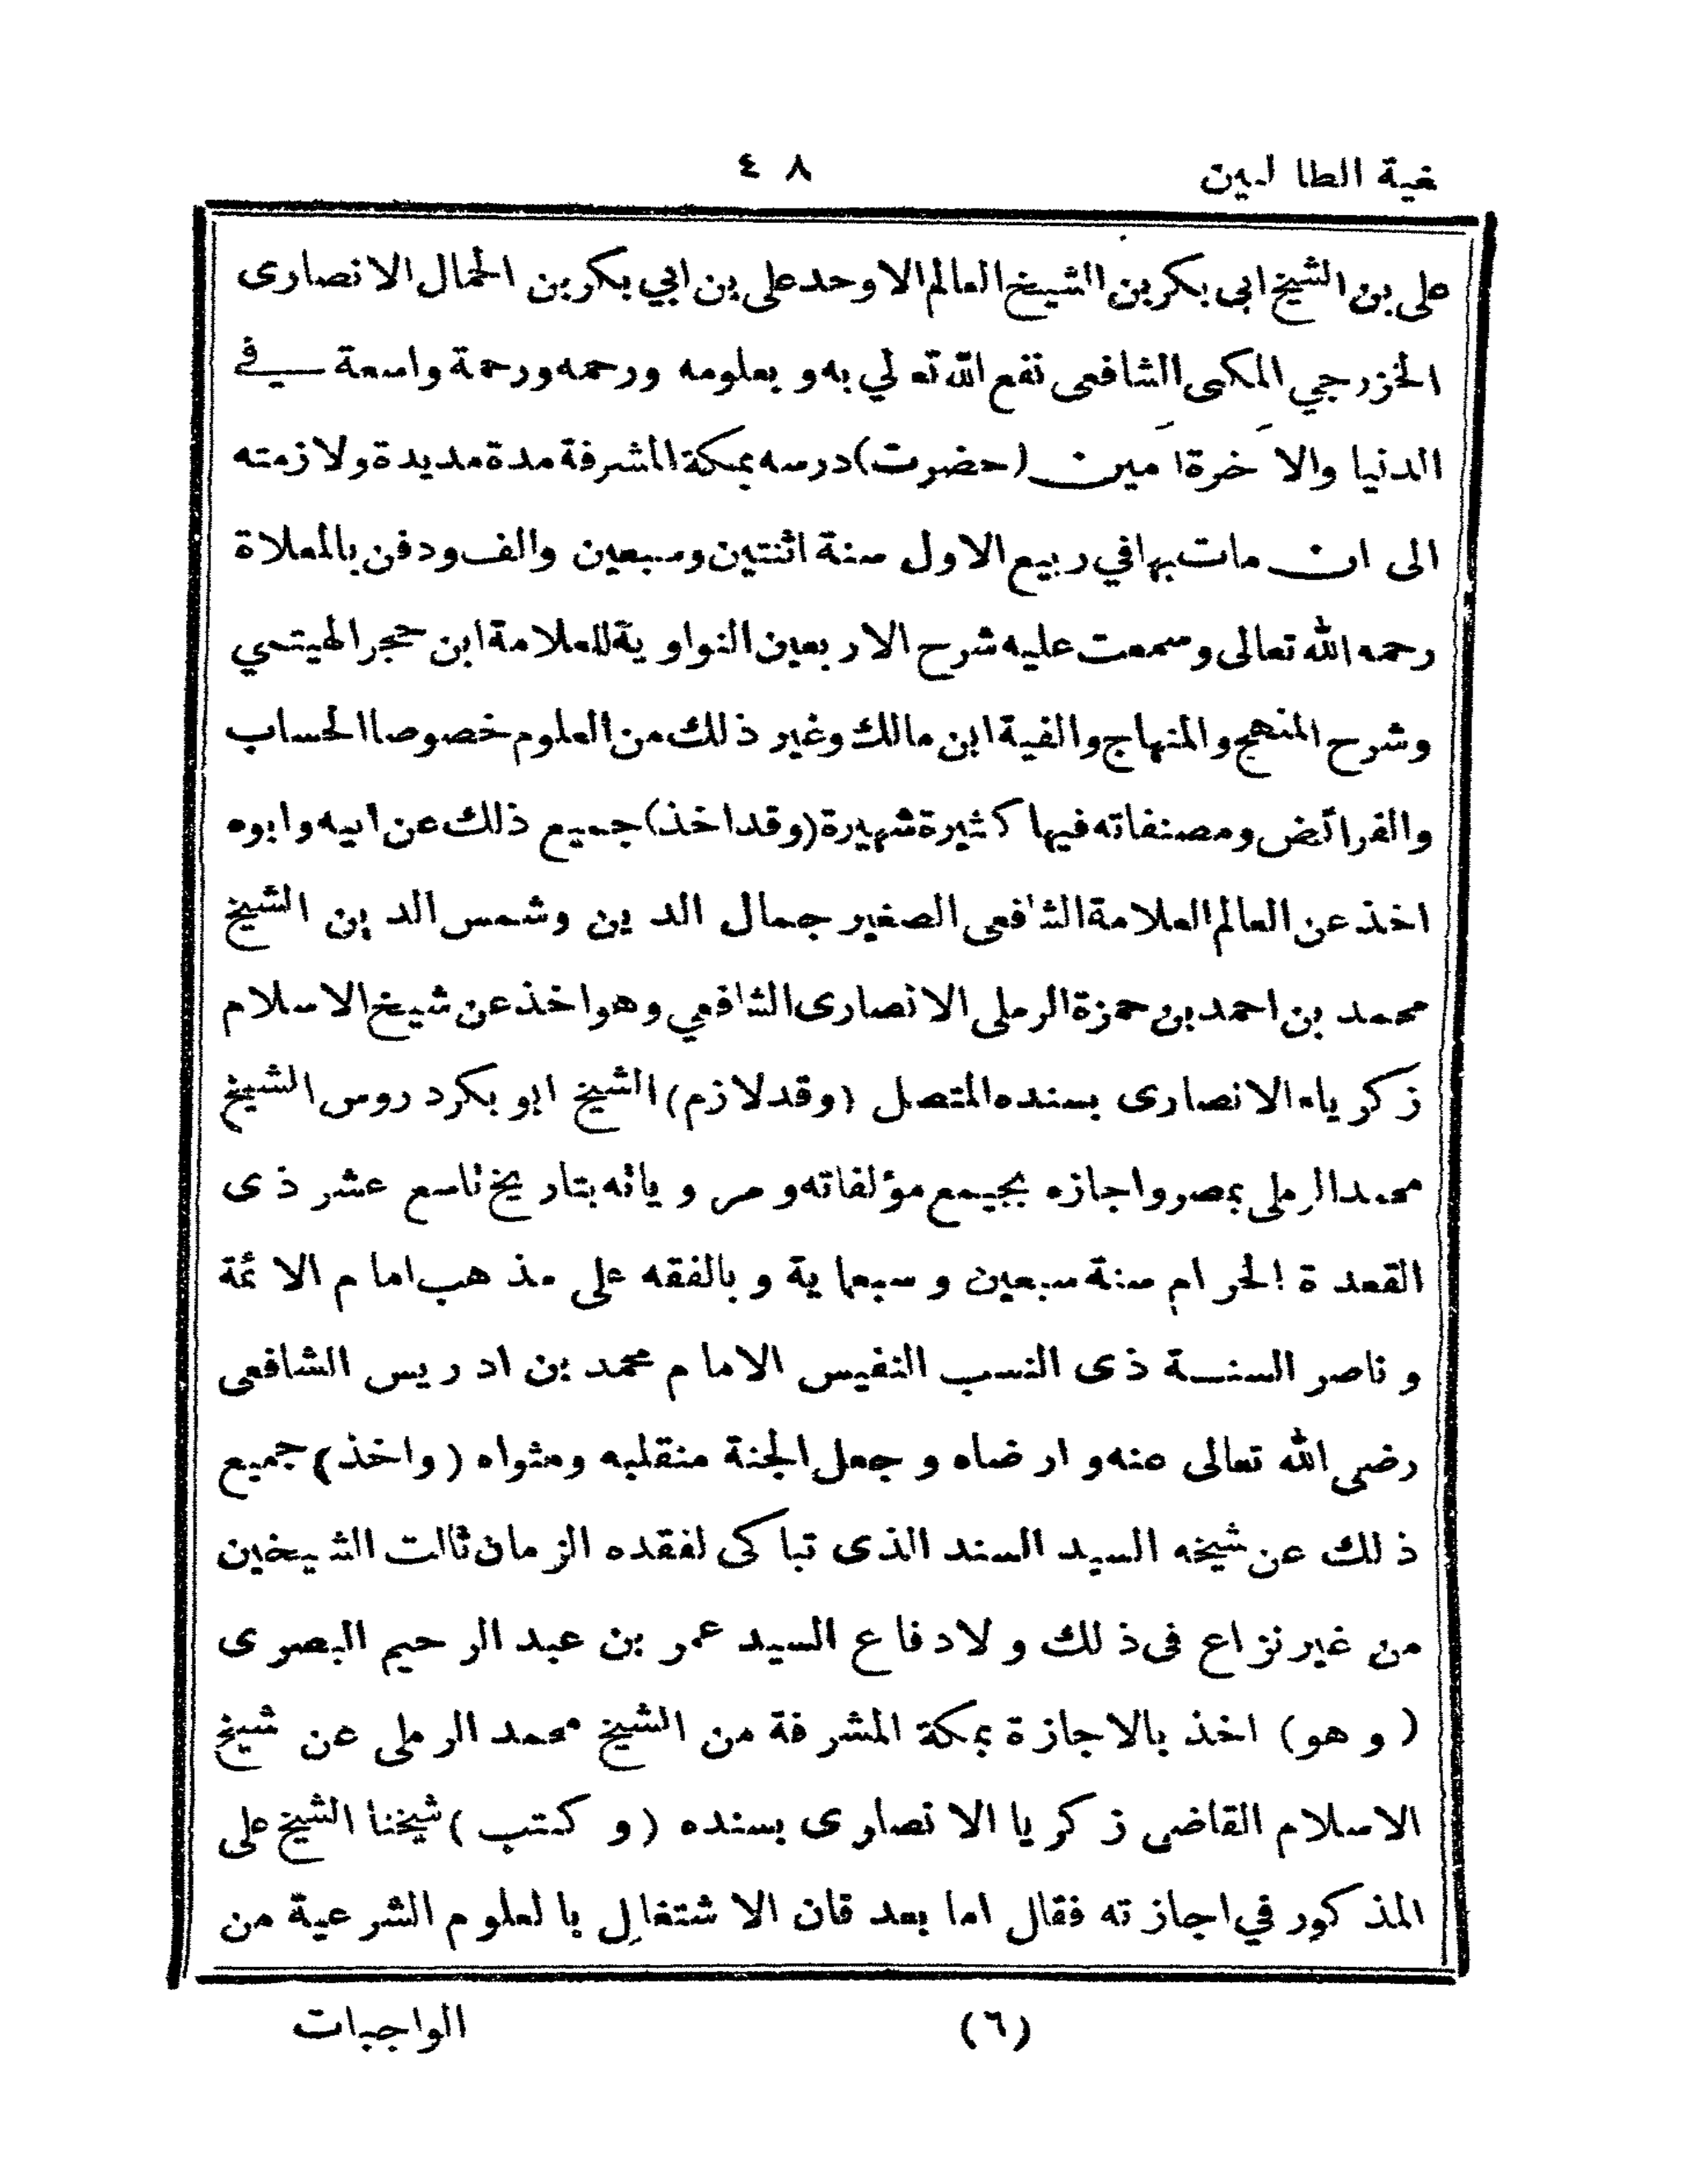 غية الطا لبين ٤٨
على بن الشيخ ابي بكر بن الشيخ العالم الاوحد على بن ابي بكر بن الجمال الانصارى
الخزرجي المكى الشافعى نفع الله تعالي به و بعلومه ورحمه ورحمة واسعة في
الدنيا والاٰ خرة اٰ مين (حضرت) درسه بمكة المشرفة مدة مديدة ولازمته
الى ان مات بها في ربيع الاول سنة اثنتين وسبعين والف ودفن بالمعلاة
رحمه الله تعالى وسمعت عليه شرح الاربعين النواوية للعلامة ابن حجر الهيتمي
وشرح المنهج والمنهاج والفية ابن مالك وغير ذلك من العلوم خصوصا الحساب
والفرائض ومصنفاته فيها كثيرة شهيرة (وقد اخذ) جميع ذلك عن ابيه وابوه
اخذ عن العالم العلامة الشافعى الصغير جمال الدين وشمس الدين الشيخ
محمد بن احمد بن حمزة الرملى الانصارى الشافعي وهو اخذ عن شيخ الاسلام
زكرياء الانصارى بسنده المتصل (وقد لازم) الشيخ ابو بكر دروس الشيخ
محمد الرملى بمصر واجازه بجيمع مؤلفاته و مر و ياته بتاريخ تاسع عشر ذى
القعدة الحرام سنة سبعين و سبعماية و بالفقه على مذهب امام الائمة
و ناصر السنة ذى النسب النفيس الامام محمد بن ادريس الشافعى
رضى الله تعالى عنه و ارضاه و جعل الجنة منقلبه ومثواه (واخذ) جميع
ذلك عن شيخه السيد السند الذى تباكى لفقده الزمان ثالث الشيخين
من غير نزاع فى ذلك و لا دفاع السيد عمر بن عبد الرحيم البصرى
(و هو) اخذ بالاجازة بمكة المشرفة من الشيخ محمد الرملى عن شيخ
الاسلام القاضى زكريا الانصارى بسنده (و كتب) شيخنا الشيخ على
المذكور في اجازته فقال اما بعد فان الاشتغال بالعلوم الشرعية من
(٦) الواجبات